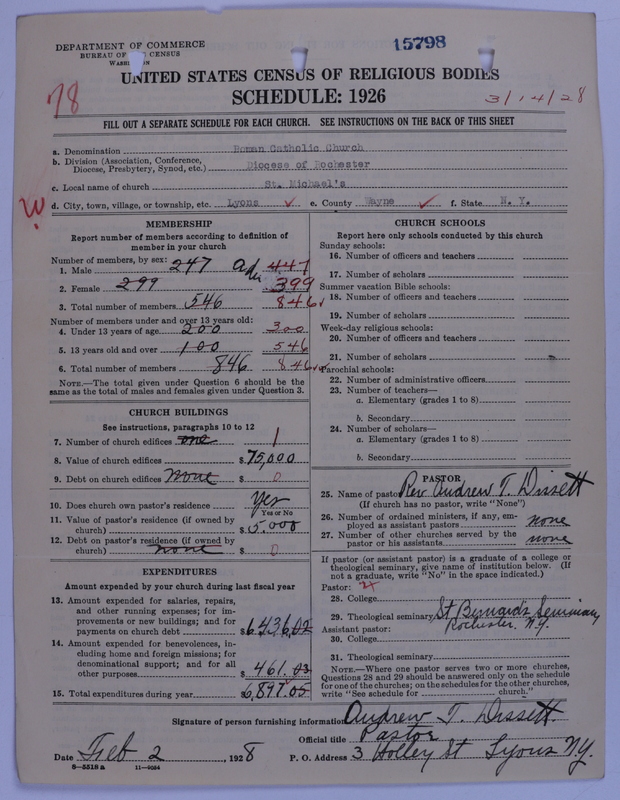 DEPARTMENT OF COMMERCE
BUREAU OF THE CENSUS
WASHINGTON
15798
UNITED STATES CENSUS OF RELIGIOUS BODIES
78
SCHEDULE: 1926
3/14/28
FILL OUT A SEPARATE SCHEDULE FOR EACH CHURCH. SEE INSTRUCTIONS ON THE BACK OF THIS SHEET
a. Denomination Roman Catholic Church
b. Division (Association, Conference, Diocese, Presbytery, Synod, etc.) Diocese of Rochester
c. Local name of church St. Michael's
W
d. City, town, village, or township, etc. Lyons ✓ e. County Wayne ✓ f. State N. Y.
MEMBERSHIP
Report number of members according to definition of
member in your church
Number of members, by sex:
1. Male 247 447
2. Female 299 399
3. Total number of members 546 846 ✓
Number of members under and over 13 years old:
4. Under 13 years of age 200 300
5. 13 years old and over 100 546
6. Total number of members 846 846
NOTE.—The total given under Question 6 should be the
same as the total of males and females given under Question 3.
CHURCH BUILDINGS
See instructions, paragraphs 10 to 12
7. Number of church edifices one 1
8. Value of church edifices $75,000
9. Debt on church edifices None $ 0
10. Does church own pastor's residence Yes
Yes or No
11. Value of pastor's residence (if owned by
church) $5,000
12. Debt on pastor's residence (if owned by
church) none $ 0
EXPENDITURES
Amount expended by your church during last fiscal year
13. Amount expended for salaries, repairs,
and other running expenses; for im-
provements or new buildings; and for
payments on church debt $6,436.02
14. Amount expended for benevolences, in-
cluding home and foreign missions; for
denominational support; and for all
other purposes $461.03
15. Total expenditures during year $6,897.05
CHURCH SCHOOLS
Report here only schools conducted by this church
Sunday schools:
16. Number of officers and teachers
17. Number of scholars
Summer vacation Bible schools:
18. Number of officers and teachers
19. Number of scholars
Week-day religious schools:
20. Number of officers and teachers
21. Number of scholars
Parochial schools:
22. Number of administrative officers
23. Number of teachers—
a. Elementary (grades 1 to 8)
b. Secondary
24. Number of scholars—
a. Elementary (grades 1 to 8)
b. Secondary
PASTOR
25. Name of pastor Rev. Andrew T. Dissett
(If church has no pastor, write "None")
26. Number of ordained ministers, if any, em-
ployed as assistant pastors none
27. Number of other churches served by the
pastor or his assistants none
If pastor (or assistant pastor) is a graduate of a college or
theological seminary, give name of institution below. (If
not a graduate, write "No" in the space indicated.)
Pastor:
28. College
29. Theological seminary St Bernard's Seminary
Rochester, N.Y.
Assistant pastor:
30. College
31. Theological seminary
NOTE.—Where one pastor serves two or more churches,
Questions 28 and 29 should be answered only on the schedule
for one of the churches; on the schedules for the other churches,
write "See schedule for church."
Signature of person furnishing information Andrew T. Dissett
Official title Pastor
Date Feb 2 1928 P. O. Address 3 Holley St Lyons N.Y.
8—5318 a 11—9034